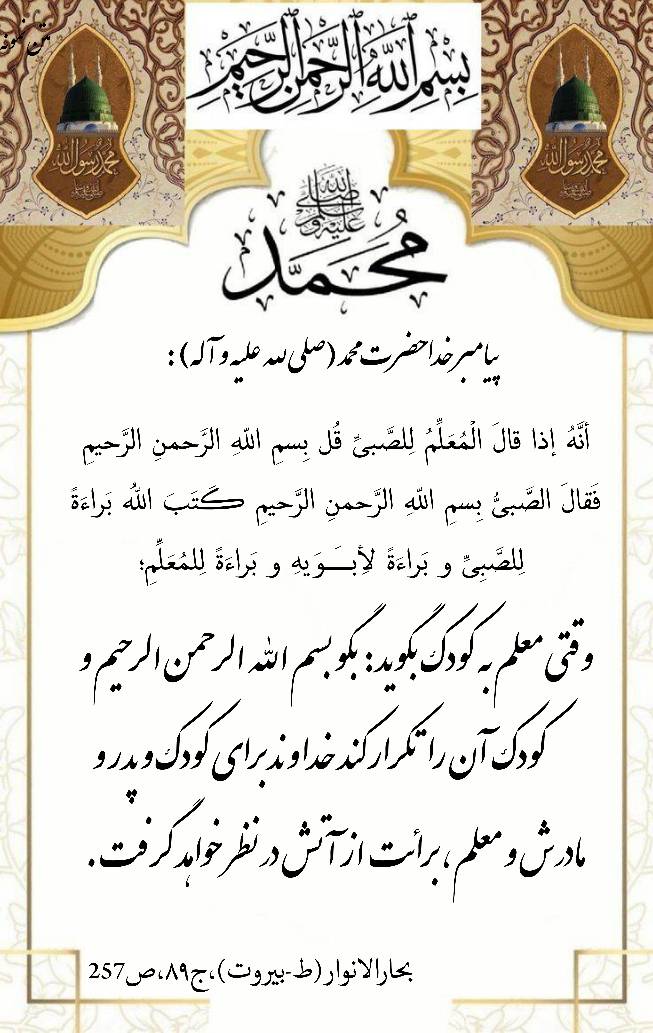 متن نمونه
بِسْمِ اللهِ الرَّحْمنِ الرَّحِيمِ
محمد رسول الله
محمد رسول الله
صلى الله عليه و
مُحَمَّد
پیامبر خدا حضرت محمد (صلی لله علیه و آله) :
أَنَّهُ إذا قالَ الْمُعَلِّمُ لِلصَّبىِّ قُل بِسمِ اللّهِ الرَحمنِ الرَّحيمِ
فَقالَ الصَّبىُّ بِسمِ اللّهِ الرَّحمنِ الرَّحيمِ كَتَبَ اللّهُ بَراءَةً
لِلصَّبِىِّ و بَراءَةً لأِبــَوَيهِ و بَراءَةً لِلمُعَلِّمِ؛
وقتی معلم به کودک بگوید: بگو بسم الله الرحمن الرحیم و
کودک آن را تکرار کند خداوند برای کودک و پدر و
مادرش و معلم، برائت از آتش در نظر خواهد گرفت.
بحارالانوار (ط-بیروت)،ج۸۹،ص257